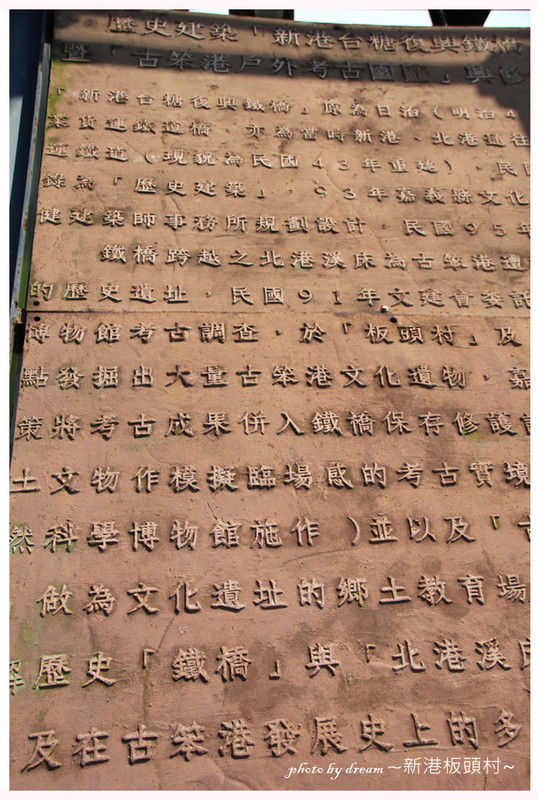 歷史建築「新港台糖復興鐵橋
暨「古笨港戶外考古園區」興修
「新港台糖復興鐵橋」原為日治(明治4
業貨運鐵道橋 亦為當時新港 北港通往
運鐵道(現貌為民國43年重建),民國
錄為「歷史建築」。93年嘉義縣文化
健建築師事務所規劃設計,民國95年
鐵橋跨越之北港溪床為古笨港遺
的歷史遺址,民國91年文建會委託
博物館考古調查,於「板頭村」及
點發掘出大量古笨港文化遺物,嘉
策將考古成果併入鐵橋保存修護計
土文物作模擬臨場感的考古實境
然科學博物館施作)並以及「古
做為文化遺址的鄉土教育場
解歷史「鐵橋」與「北港溪床
及在古笨港發展史上的多
photo by dream ~新港板頭村~